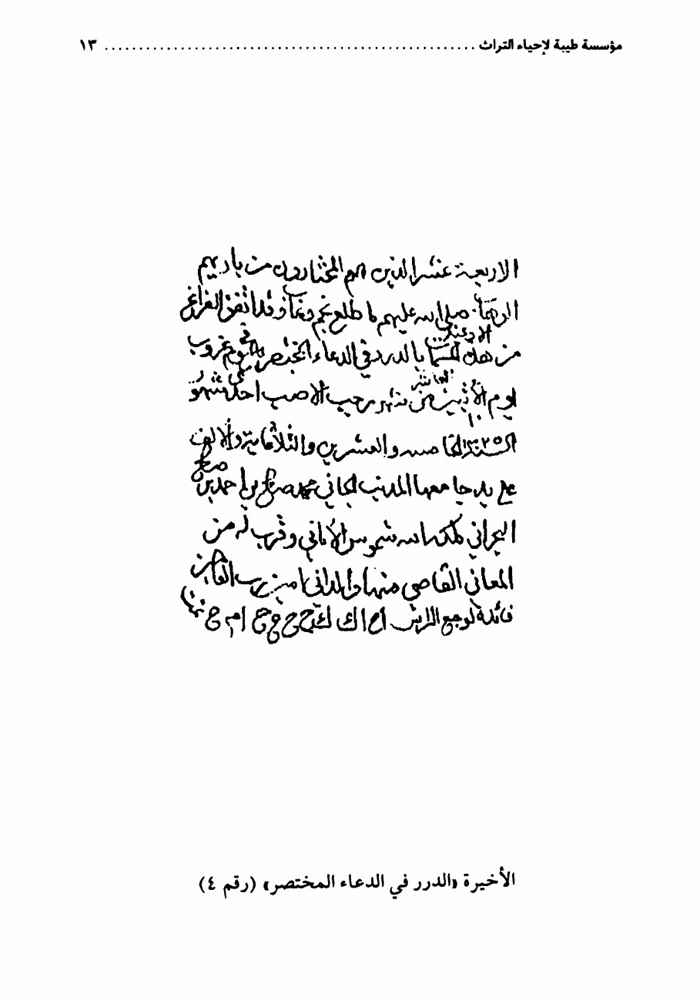 مؤسسة طيبة لإحياء التراث ........................................................ ١٣
الاربعة عشر الذين هم المختارون من باريهم
صلى الله عليهم ما طلع نجم وغاب وقد اتفق الفراغ
من هذه الادعية المسماة بالدرر في الدعاء المختصر غروب
يوم الأثنين العاشر من شهر رجب الاصب احد شهور
السنة ١٣٢٥ الخامسه والعشرين والثلاثماية والالف
على يد جامعها المذنب الجاني محمد صالح بن احمد بن صالح
البحراني ملكه الله شموس الأماني وقرب له من
المعاني القاصي منها والداني امين رب العالمين
فائدة لوجع الراس
الأخيرة «الدرر في الدعاء المختصر» (رقم ٤)